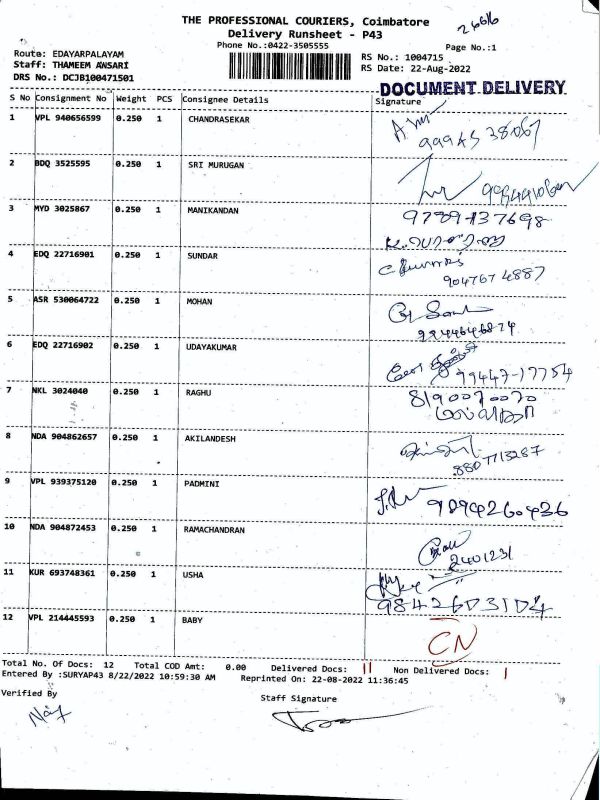 THE PROFESSIONAL COURIERS, Coimbatore
Delivery Runsheet - P43
Phone No.:0422-3505555
Page No.:1
Route: EDAYARPALAYAM
Staff: THAMEEM ANSARI
DRS No.: DCJB100471501
RS No.: 1004715
RS Date: 22-Aug-2022
DOCUMENT DELIVERY
S No Consignment No Weight PCS Consignee Details Signature
1 VPL 940656599 0.250 1 CHANDRASEKAR
2 BDQ 3525595 0.250 1 SRI MURUGAN
3 MYD 3025867 0.250 1 MANIKANDAN
4 EDQ 22716901 0.250 1 SUNDAR
9047674887
5 ASR 530064722 0.250 1 MOHAN
6 EDQ 22716902 0.250 1 UDAYAKUMAR
99447-17754
7 NKL 3024040 0.250 1 RAGHU
8190070070
8 NDA 904862657 0.250 1 AKILANDESH
8807713287
9 VPL 939375120 0.250 1 PADMINI
9094260436
10 NDA 904872453 0.250 1 RAMACHANDRAN
2401231
11 KUR 693748361 0.250 1 USHA
9842603104
12 VPL 214445593 0.250 1 BABY
CN
Total No. Of Docs: 12 Total COD Amt: 0.00 Delivered Docs: 11 Non Delivered Docs: 1
Entered By :SURYAP43 8/22/2022 10:59:30 AM Reprinted On: 22-08-2022 11:36:45
Verified By
Staff Signature